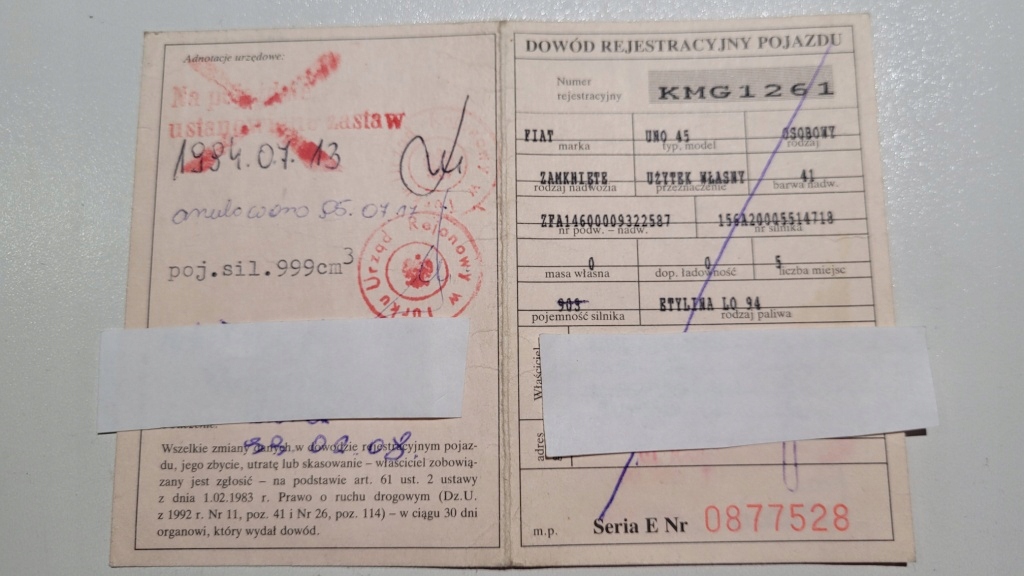 Adnotacje urzędowe:
Na
ustanowiono zastaw
1994.07.13
anulowano 95.07.17
poj.sil.999cm³
Urząd Rejonowy w
Wszelkie zmiany danych w dowodzie rejestracyjnym pojaz-
du, jego zbycie, utratę lub skasowanie – właściciel zobowią-
zany jest zgłosić – na podstawie art. 61 ust. 2 ustawy
z dnia 1.02.1983 r. Prawo o ruchu drogowym (Dz.U.
z 1992 r. Nr 11, poz. 41 i Nr 26, poz. 114) – w ciągu 30 dni
organowi, który wydał dowód.
DOWÓD REJESTRACYJNY POJAZDU
Numer
rejestracyjny
KMG1261
FIAT UNO 45 OSOBOWY
marka typ, model rodzaj
ZAMKNIĘTE UŻYTEK WŁASNY 41
rodzaj nadwozia przeznaczenie barwa nadw.
ZFA14600009322587 156A20005514718
nr podw. – nadw. nr silnika
0 0 5
masa własna dop. ładowność liczba miejsc
903 ETYLINA LO 94
pojemność silnika rodzaj paliwa
Właściciel
adres
m.p. Seria E Nr 0877528